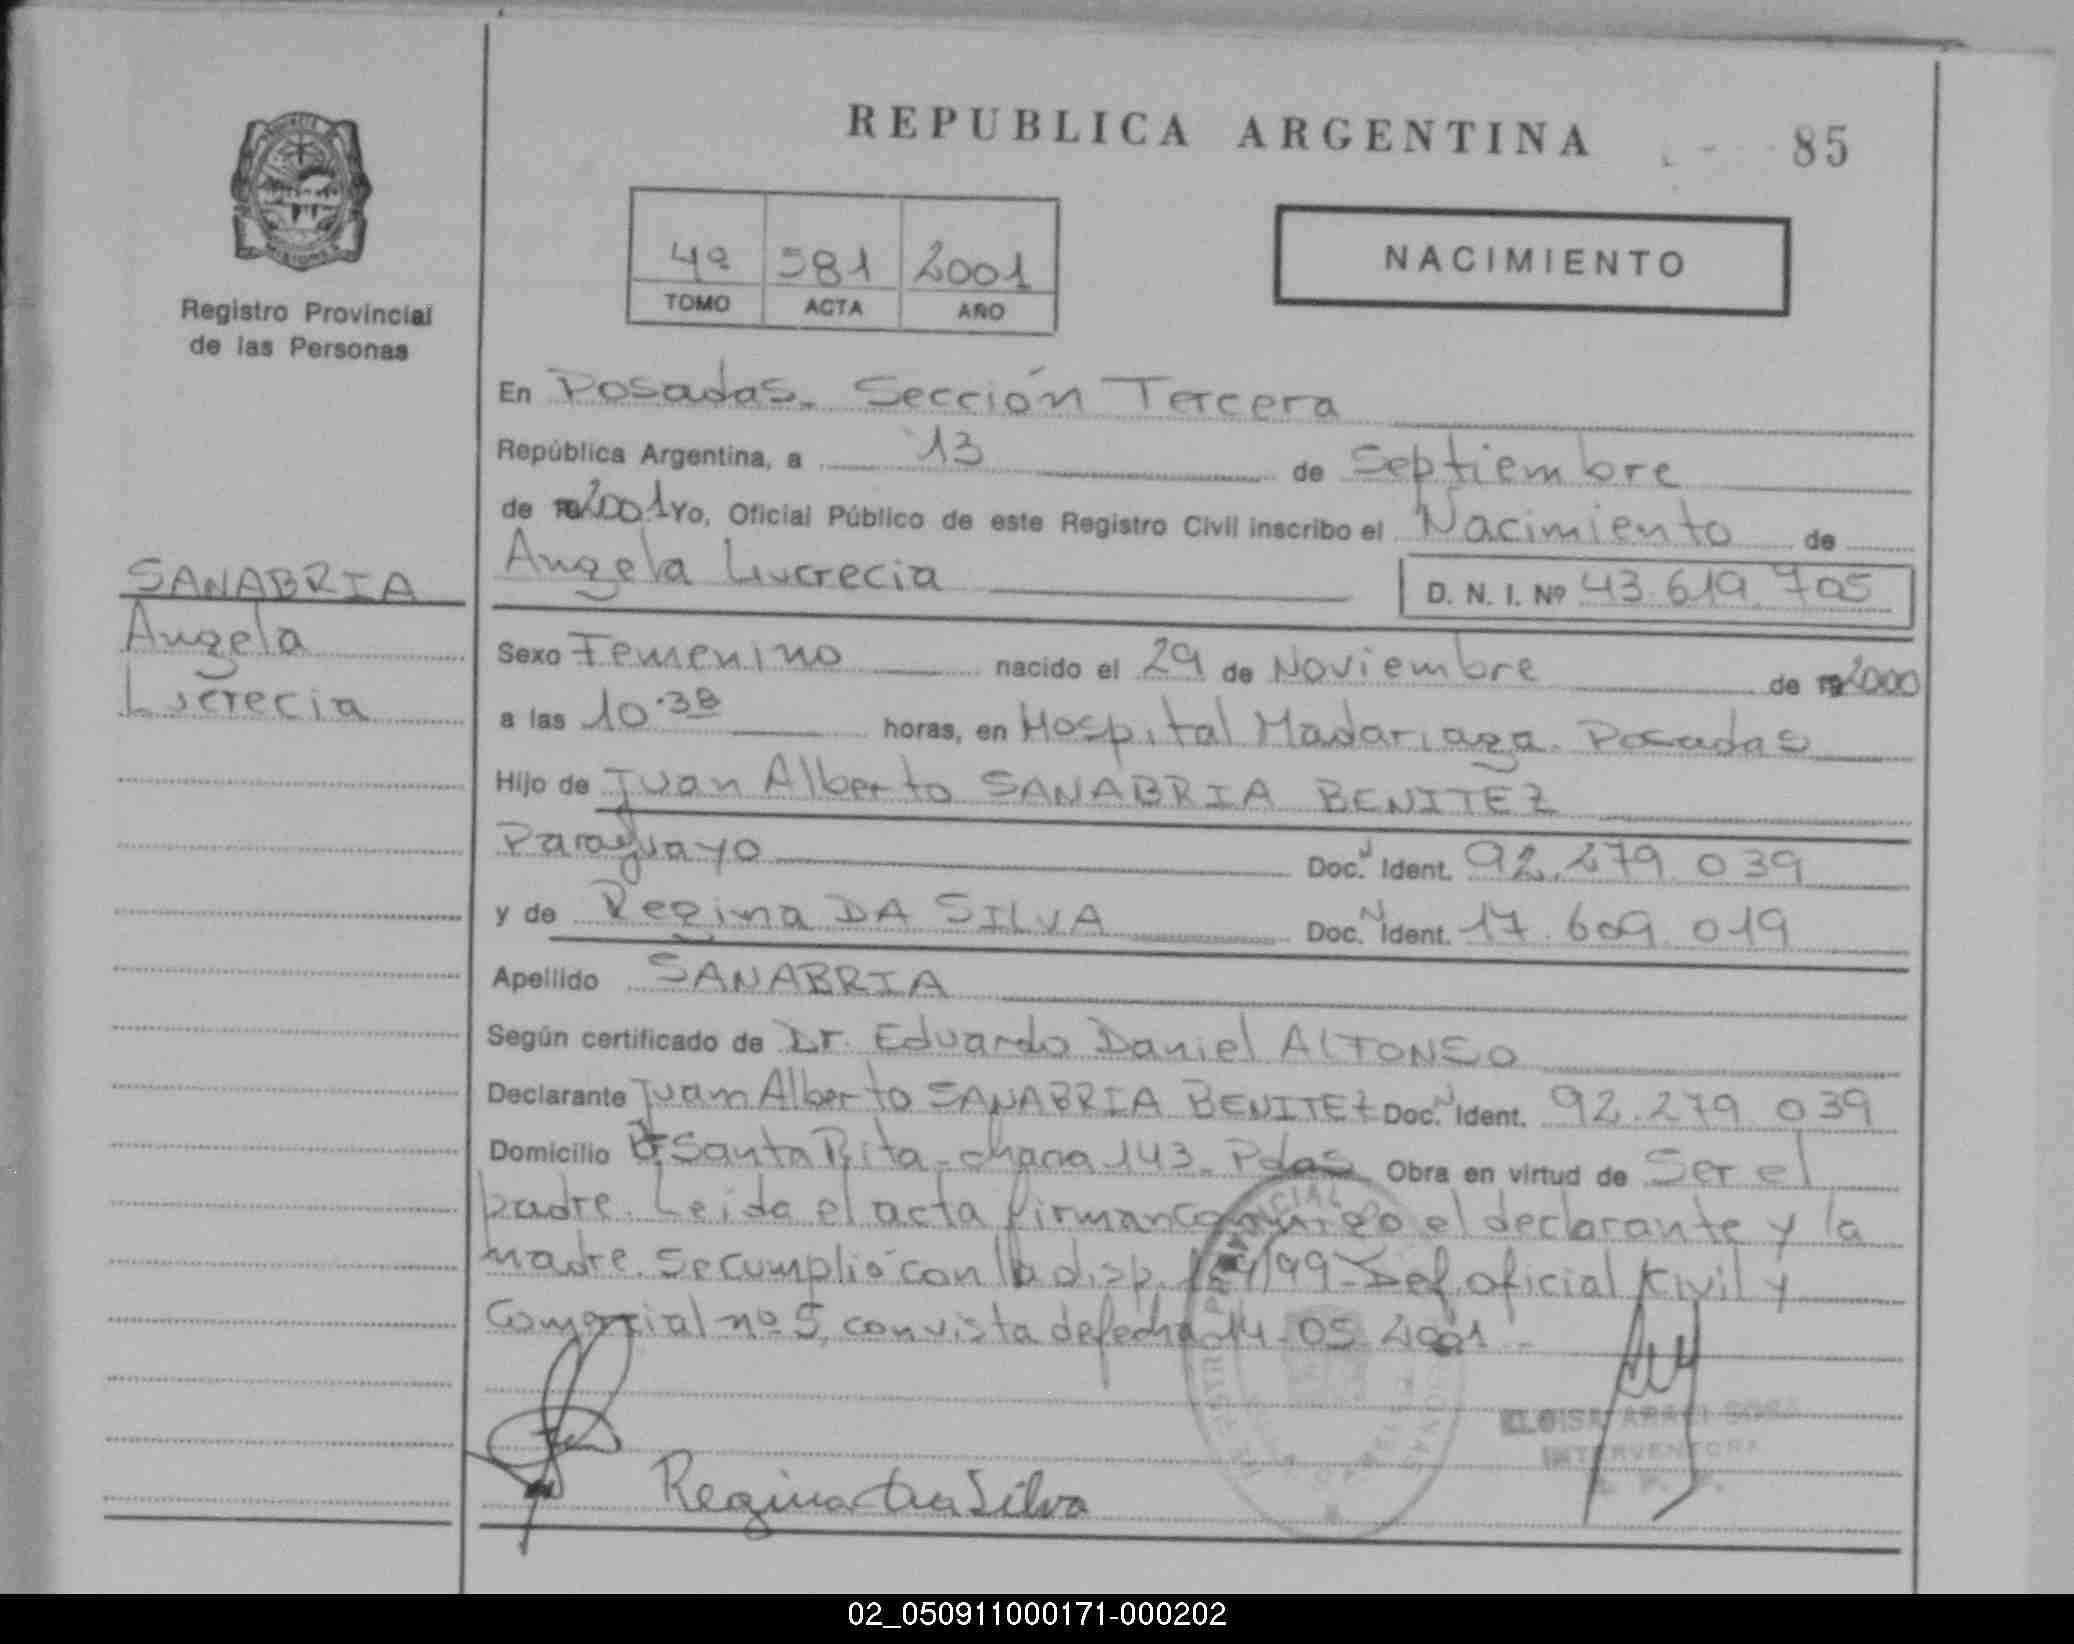 REPUBLICA ARGENTINA
85
4º 581 2001
TOMO ACTA AÑO
NACIMIENTO
Registro Provincial
de las Personas
En Posadas. Sección Tercera
República Argentina, a 13 de Septiembre
de 2001 Yo, Oficial Público de este Registro Civil inscribo el Nacimiento de
Angela Lucrecia D. N. I. Nº 43.619.705
SANABRIA
Angela
Lucrecia
Sexo Femenino nacido el 29 de Noviembre de 2000
a las 10.38 horas, en Hospital Madariaga. Posadas
Hijo de Juan Alberto SANABRIA BENITEZ
Paraguayo Doc. Ident. 92.279.039
y de Regina DA SILVA Doc. Ident. 17.609.019
Apellido SANABRIA
Según certificado de Dr. Eduardo Daniel ALFONSO
Declarante Juan Alberto SANABRIA BENITEZ Doc. Ident. 92.279.039
Domicilio Bº Santa Rita - chacra 143. Pdas Obra en virtud de Ser el
padre. Leida el acta firman conmigo el declarante y la
madre. Se cumplió con la disp. /99 - Def. oficial Civil y
Comercial nº 5, con vista de fecha 14.05.2001.-
Regina da Silva
ELOISA ARACI SOSA
INTERVENTORA
R. P. P.
02_050911000171-000202